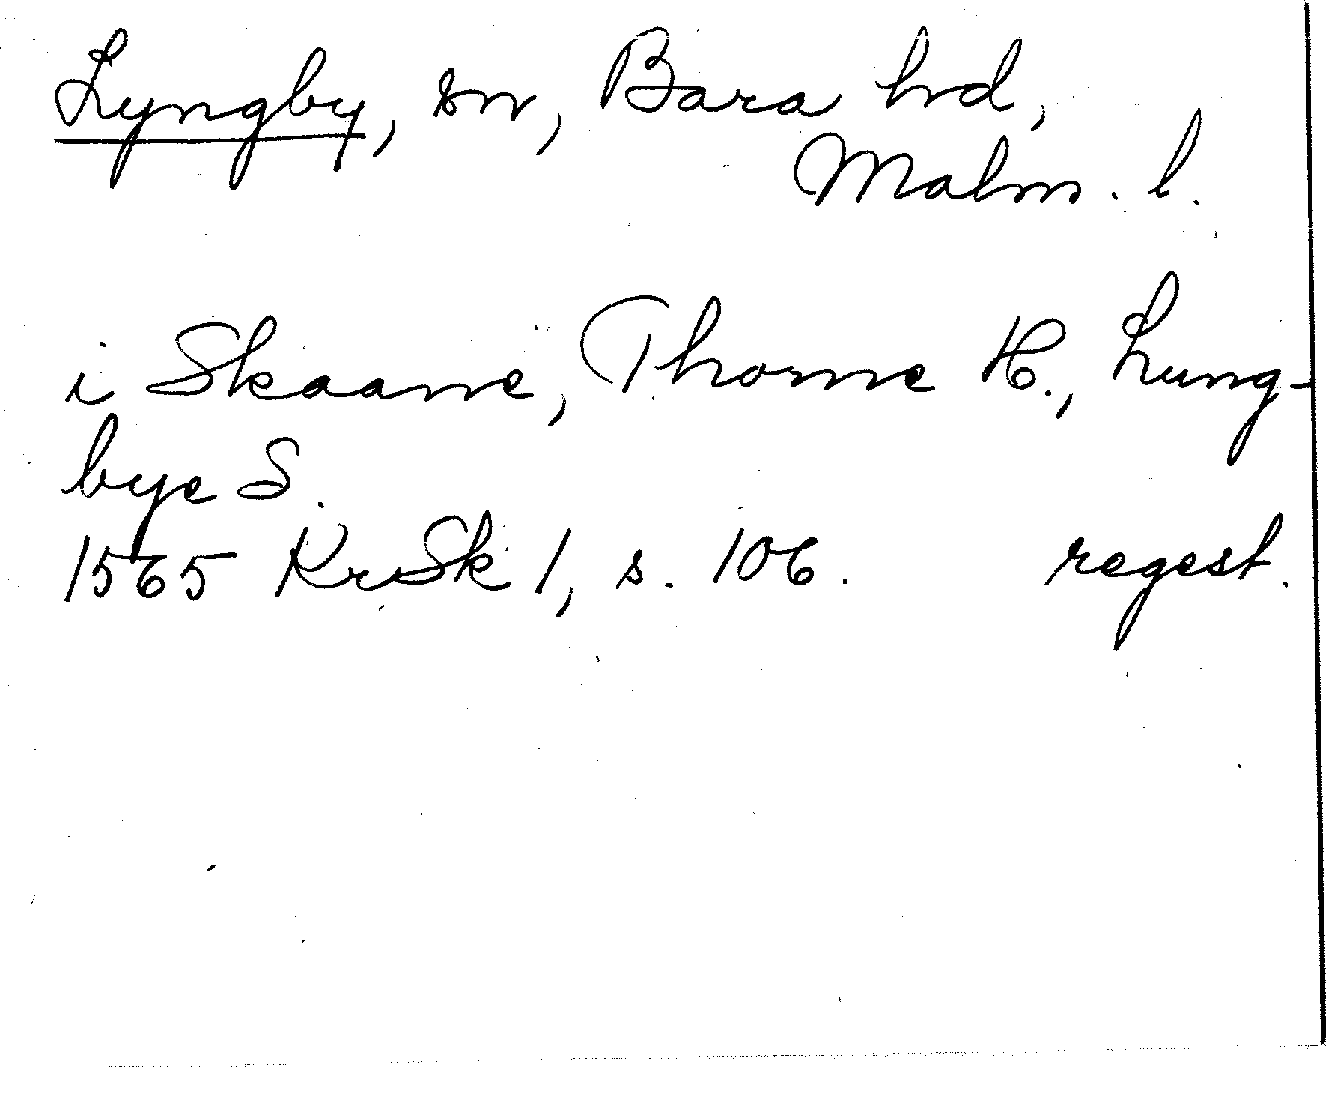 Lyngby, sn, Bara hd,
Malm. l.
i Skaane, Thorne H., Lung-
bye S.
1565 KrSk 1, s. 106. regest.